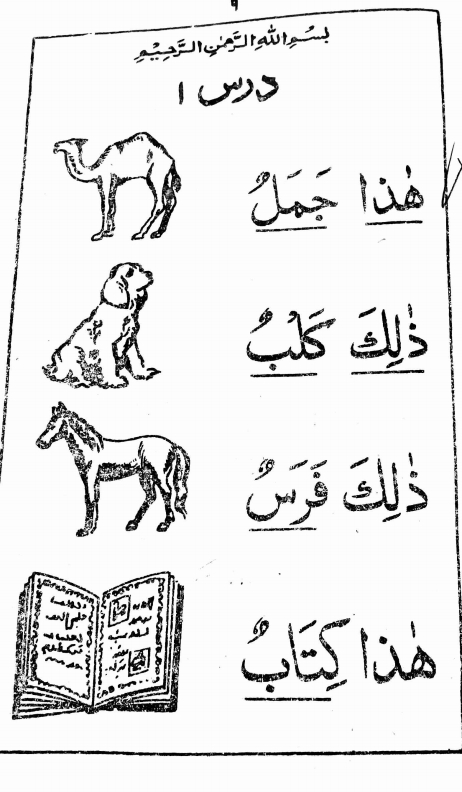 ۹
بِسْمِ اللهِ الرَّحْمٰنِ الرَّحِيْمِ
درس ۱
هٰذا جَمَلٌ
ذٰلِكَ كَلْبٌ
ذٰلِكَ فَرَسٌ
هٰذا كِتَابٌ